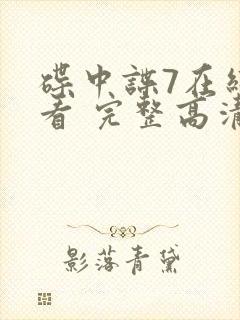 碟中諜7在
看 完整高清
影落青黛